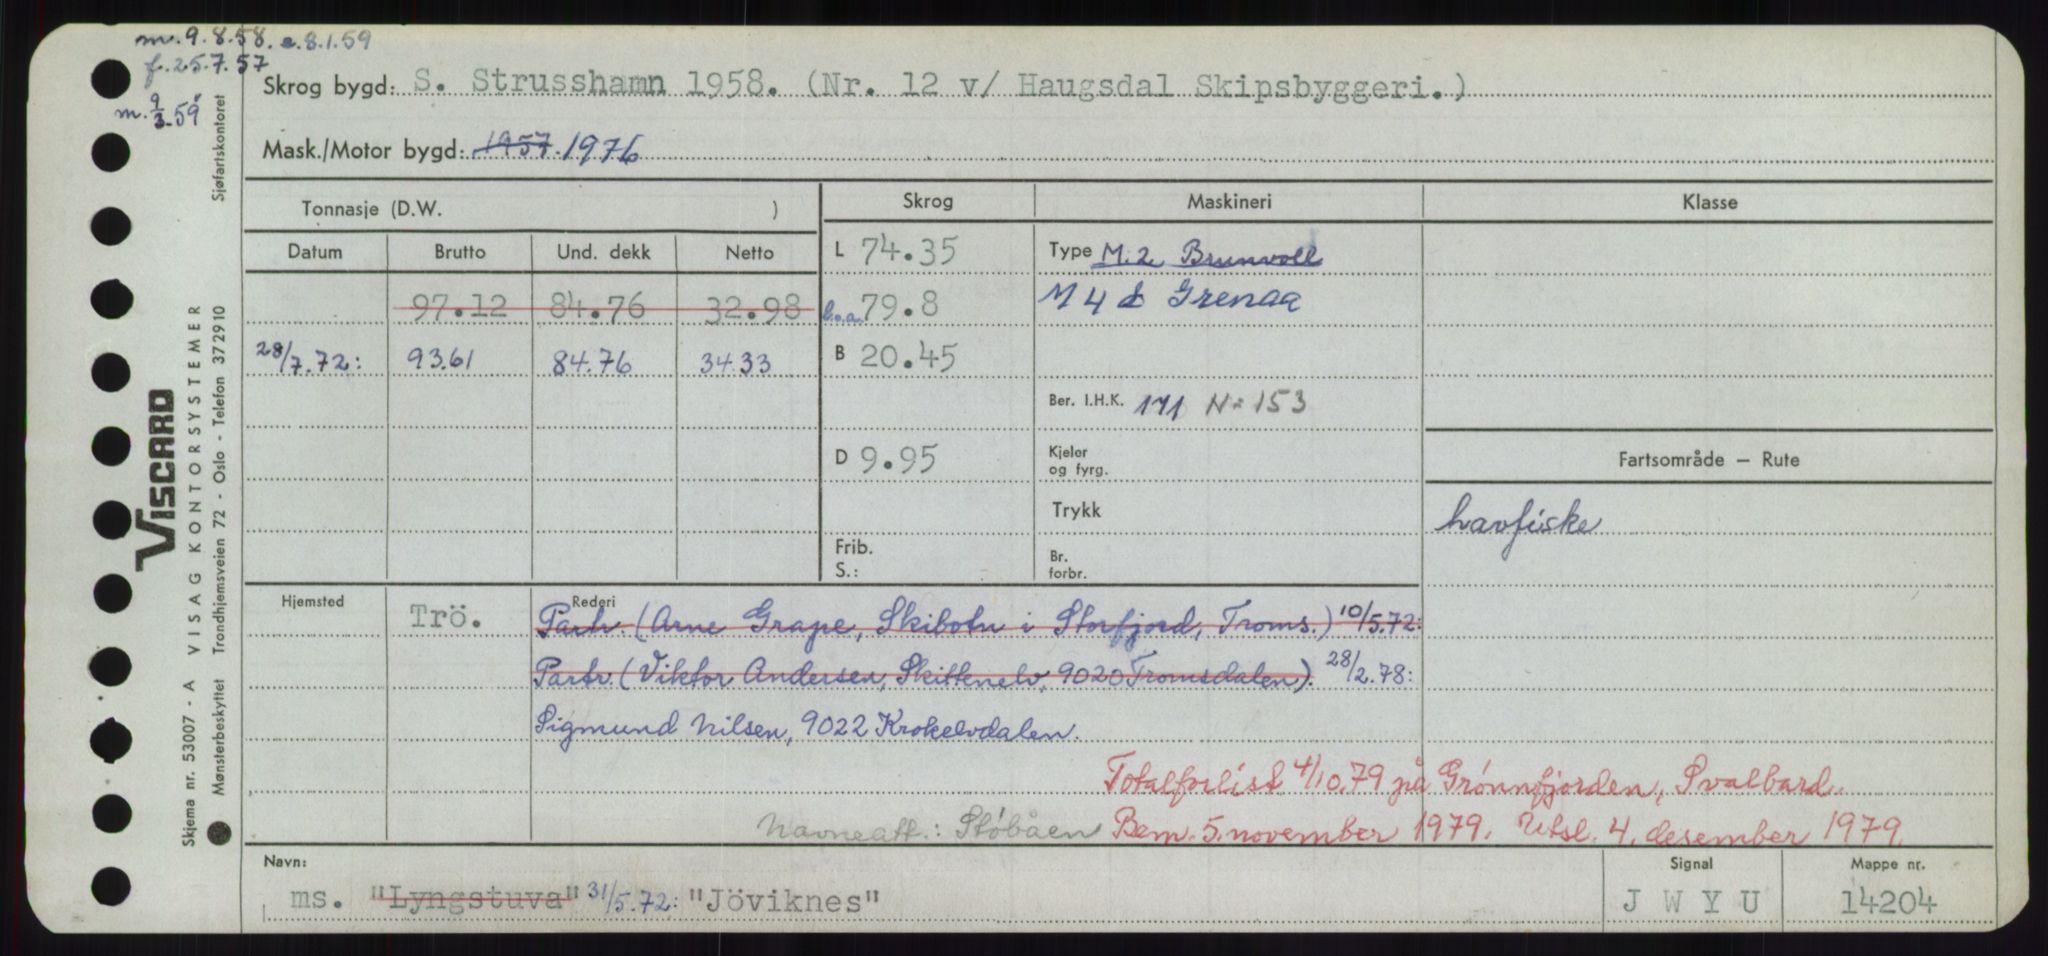 m. 9.8.58. e. 8.1.59
f. 25.7.57
m. 9/3 59
Skrog bygd: S. Strusshamn 1958. (Nr. 12 v/ Haugsdal Skipsbyggeri.)
Mask./Motor bygd: 1957. 1976
Tonnasje (D.W. )
Skrog
Maskineri
Klasse
Datum Brutto Und. dekk Netto
L 74.35
Type M.2 Brunvoll
97.12 84.76 32.98
l.o.a. 79.8
M 4 Grenaa
28/7.72: 93.61 84.76 34.33
B 20.45
Ber. I.H.K. 171 N=153
D 9.95
Kjeler
og fyrg.
Fartsområde — Rute
Trykk
havfiske
Frib.
S.:
Br.
forbr.
Hjemsted Trö. Rederi
Partr. (Arne Grape, Skibotn i Storfjord, Troms.) 10/5.72:
Partr. (Viktor Andersen, Skittenelv, 9020 Tromsdalen). 28/2.78:
Sigmund Nilsen, 9022 Krokelvdalen.
Totalforlist 4/10.79 på Grønnfjorden, Svalbard.
Navneatt.: Støbåen Bem. 5. november 1979. Utsl. 4. desember 1979.
Navn:
Signal
Mappe nr.
ms. "Lyngstuva" 31/5.72: "Jöviknes"
J W Y U
14204
VISCARD
Skjema nr. 53007 - A VISAG KONTORSYSTEMER
Mønsterbeskyttet Trondhjemsveien 72 - Oslo - Telefon 372910
Sjøfartskontoret